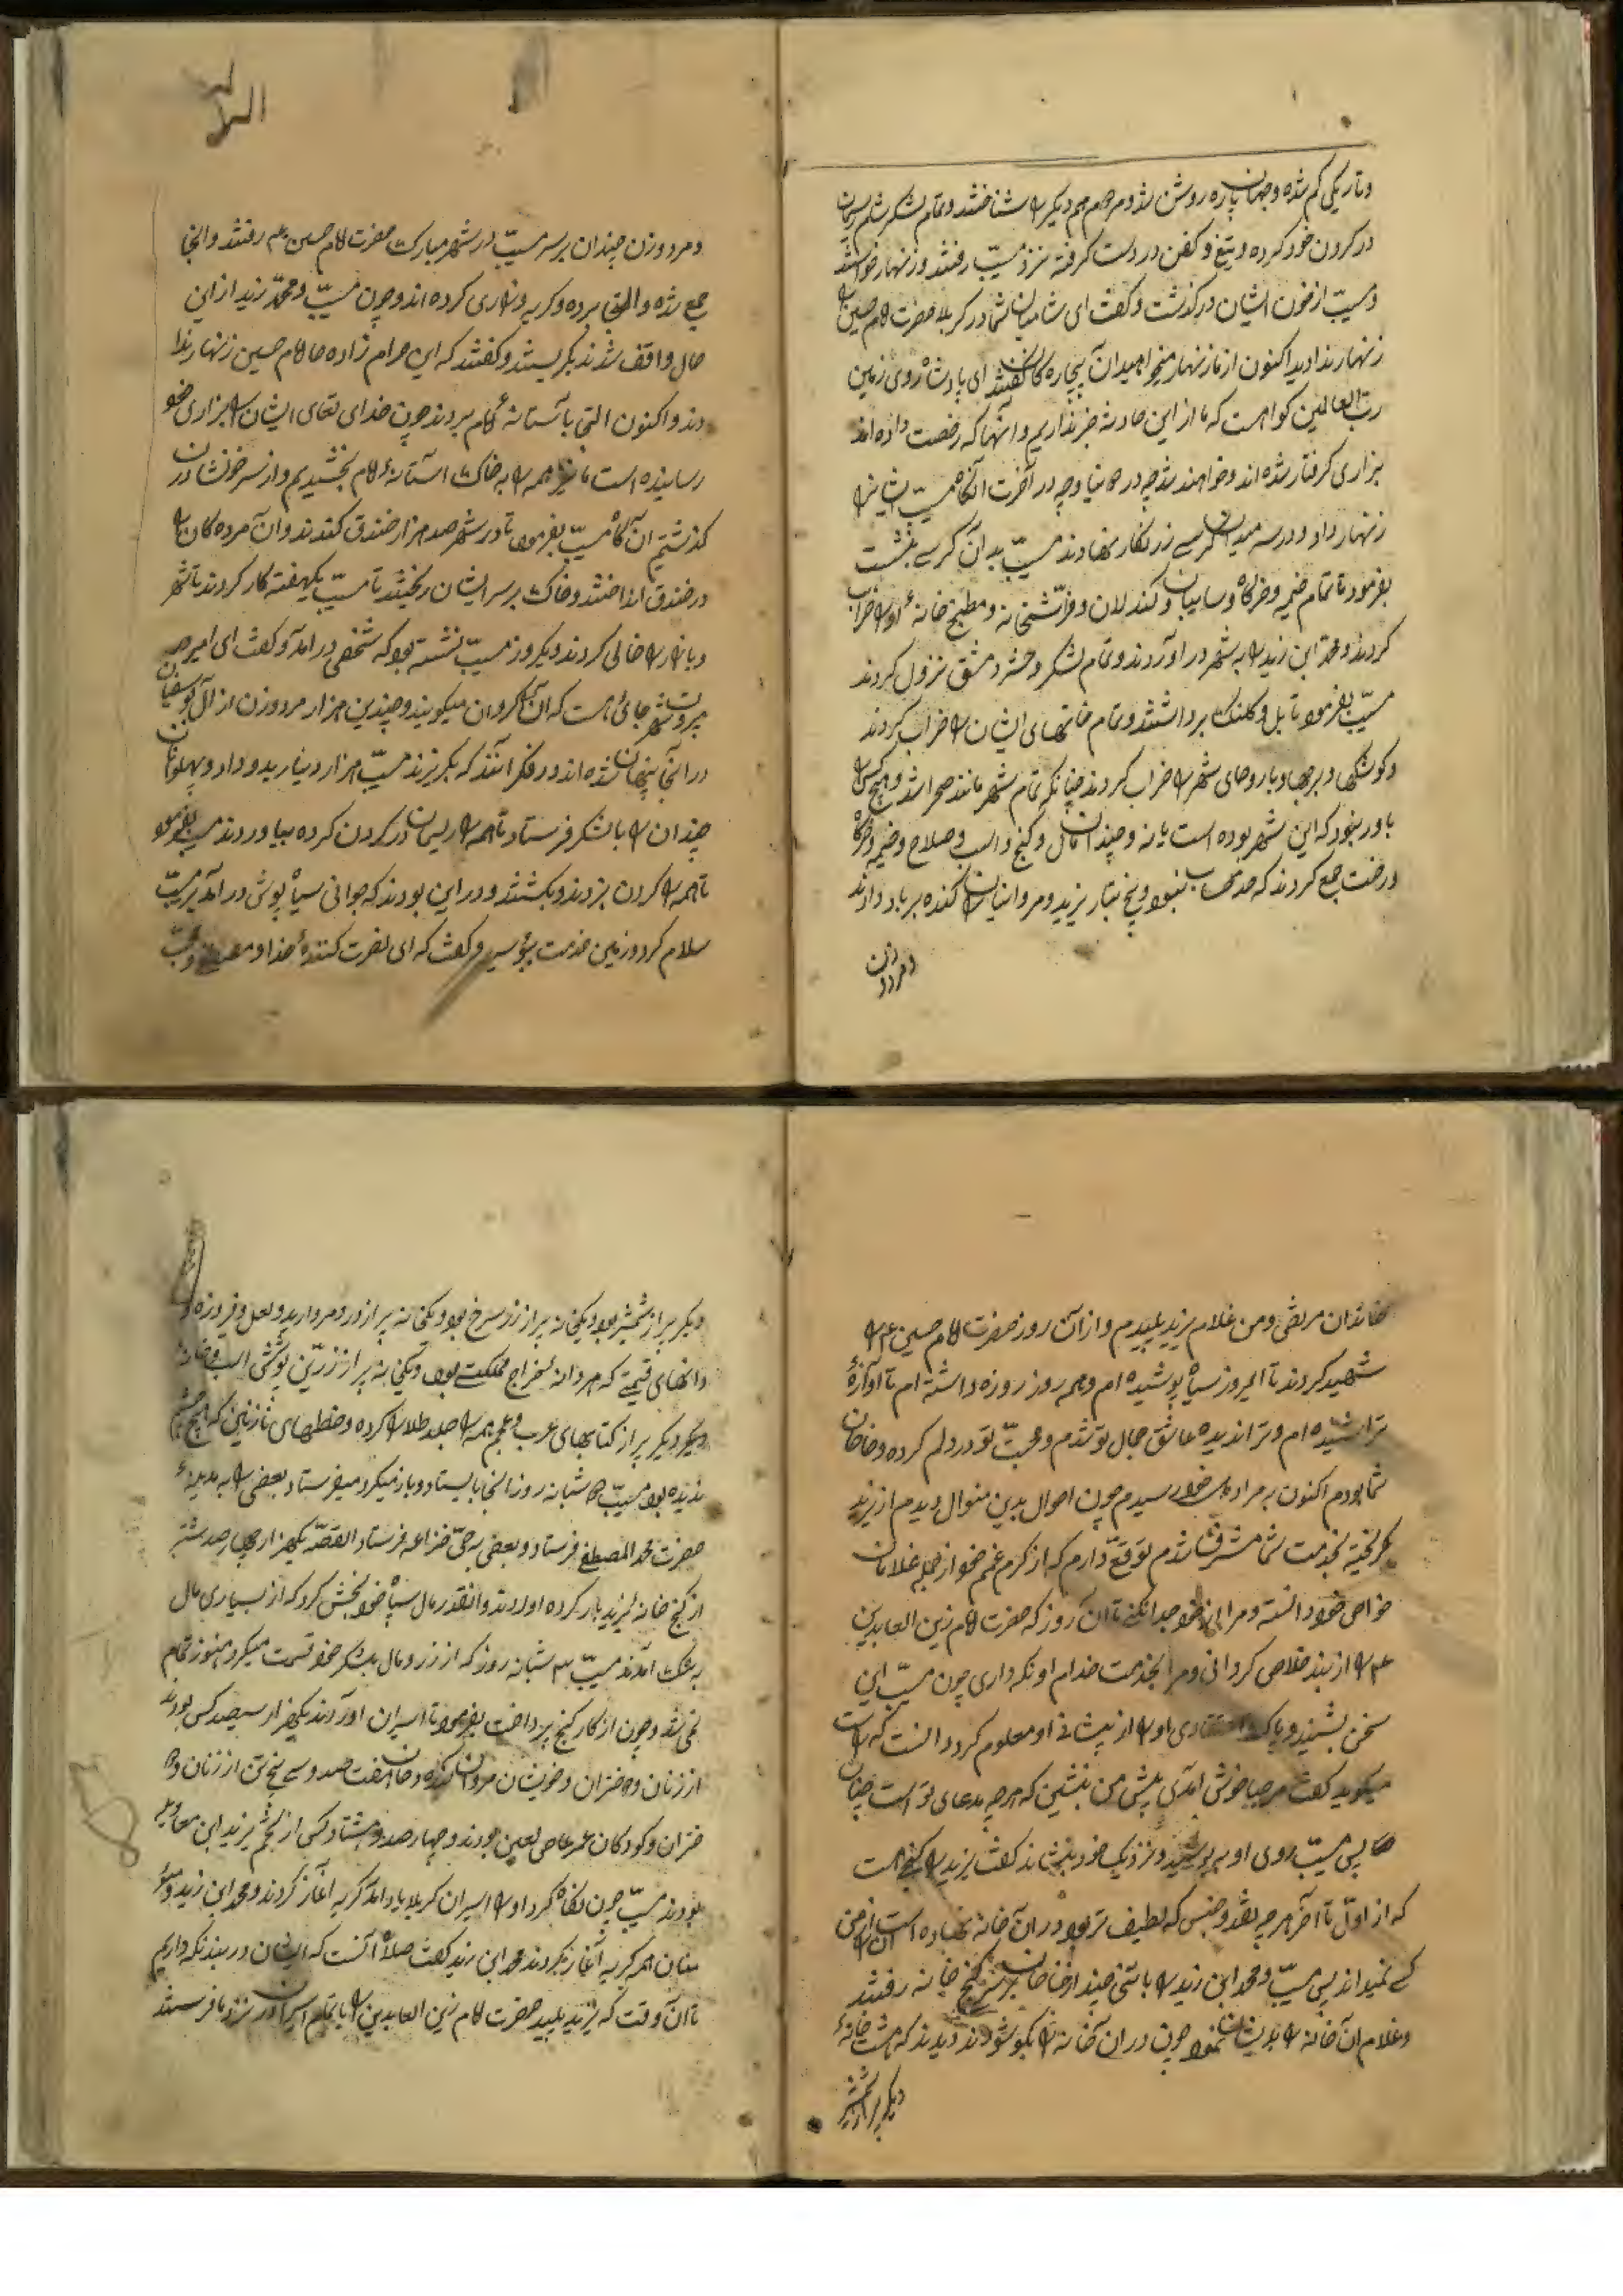 وتاریکی کم شده وجهان پاره روشن شد ومردم هم دیکر را شناختند وتمام لشکر شام ریسمان
در کردن خود کرده وتیغ وکفن در دست کرفته نزد مسیّب رفتند وزنهار خواستند
ومسیّب از خون ایشان درکذشت وکفت ای شامیان شما در کربلا حضرت امام حسین را
زنهار ندادید اکنون از ما زنهار میخواهید آن بیچاره کان کفتند ای پادشاه روی زمین
ربّ العالمین کواه است که ما از این حادثه خبر نداریم وانها که رخصت داده اند
بزاری کرفتار شده اند وخواهند شد چه در دنیا وچه در آخرت انکاه مسیّب ایشانرا
زنهار داد ودر سر میدان کرسی زرنکار نهادند مسیّب بدان کرسی بنشست
بفرمود تا تمام خیمه وخرکاه وسایبان وکندلان وفرّاشخانه ومطبخ خانهٔ او را خراب
کردند ومحمّد ابن زید را به شهر در اوردند وتمام لشکر وحشر دمشق نزول کردند
مسیّب بفرمود تا بیل وکلنک برداشتند وتمام خانهای ایشان را خراب کردند
وکوشکها وبرجها وباروهای شهر را خراب کردند چنانکه تمام شهر مانند صحرا شد وهیچ کس را
باور نبود که این شهر بوده است یا نه وچندان مال وکنج واسب وصلاح وخیمه وخرکاه
ورخت جمع کردند که حد وحساب نبود وبیخ وتبار یزید ومروانیان را کنده برباد دادند
ومرد وزن
ومرد وزن چندان بر سر مسیّب در شهر مبارک حضرت امام حسین ع م رفتند وانجا
جمع شده والتجا برده وکریه وزاری کرده اند وچون مسیّب ومحمّد زید از این
حال واقف شدند بکریستند وکفتند که این حرام زاده ها امام حسین زنهار ندا
دند واکنون التجا بآستانهٔ امام بردند چون خدای تعای ایشان را بزاری خود
رسانیده است ما نیز همه را به خاک آستانهٔ امام بخشیدیم واز سر خونشان در
کذشتیم ان کاه مسیّب بفرمود تا در شهر صد هزار خندق کندند وان مرده کان را
در خندق انداختند وخاک بر سر ایشان ریختند تا مسیّب یکهفته کار کردند تا شهر
وبازار را خالی کردند ویکروز مسیّب نشسته بود که شخصی در امد وکفت ای امیر در
بیرون شهر جائی هست که آن را کروان میکویند وچندین هزار مرد وزن از آل بوسفیان
در انجا پنهان شده اند ودر فکر آنند که بکریزند مسیّب هزار دینار بدو داد وپهلوانان
چندان را با لشکر فرستاد تا همه را ریسمان در کردن کرده بیاوردند مسیّب بفرمود
تا همه را کردن بزدند وبکشتند ودر این بودند که جوانی سیاه پوش در امد بر مسیّب
سلام کرد وزمین خدمت ببوسید وکفت که ای نصرت کنندهٔ خدا ومصطفی ومحبّ
خاندان مرتضی ومن غلام یزید پلیدم واز آن روز حضرت امام حسین ع م را
شهید کردند تا امروز سیاه پوشیده ام وهمه روز روزه داشته ام تا آوازهٔ
ترا شنیده ام وترا ندیده عاشق جمال تو شدم ومحبّت تو در دلم کرده وخاخان
شما بودم اکنون به مراد دل خود رسیدم چون احوال بدین منوال دیدم از یزید
بکریخته بخدمت شما مشرف شدم توقعّ دارم که از کرم عمیم خود از جمله غلامان
خواص خود دانسته ومرا از خود جدا نکنی تا ان روز که حضرت امام زین العابدین
ع م را از بند خلاص کردانی ومرا بخدمت خدام او نکه داری چون مسیّب این
سخن بشنید وپاک اعتقادی او را از پیشانی او معلوم کرد دانست که راست
میکوید کفت مرحبا خوش امدی پیش من بنشین که هر چه مدعای تو است چنان
پس مسیّب روی او ببوسید ونزدیک خود بنشاند کفت یزید را کنجی است
که از اول تا آخر هر چه نقد وجنس که لطیف تر بود در ان خانه نهاده است وان را جز من
کسی نمیداند پس مسیّب ومحمد ابن زید را با تنی چند از خاصان بر سر کنج خانه رفتند
وغلام ان خانه را بدیشان نمود چون در ان خانه را بکوشودند دیدند که هشت خانهٔ
دیکر پر از شمشیر
دیکر پر از شمشیر بود ویکخانه پر از زر سرخ بود ویکخانه پر از در ومروارید ولعل وفیروزه و
دانهای قیمتی که هر دانه بخراج مملکتی بود ویکخانه پر از زرّین پوش اسب وخانه
دیکر پر از کتابهای عرب وعجم همه را جلد طلا کرده وخطهای نازنین که هیچ چشم
ندیده بود مسیّب ده شبانه روز انجا بایستاد وبار میکرد ومیفرستاد بعضی را به مدینهٔ
حضرت محمد المصطفی فرستاد وبعضی به حیّ خزاعه فرستاد القصّه یکهزار وچهار صد شتر
از کنج خانه یزید بار کرده اوردند وانقدر مال بسپاه خود بخش کرد که از بسیاری مال
بشک آمدند مسیّب ۳ شبانه روز که از زر ومال بلشکر خود قسمت میکرد هنوز تمام
نمی شد وچون از کار کنج پرداخت بفرمود تا اسیران اوردند یکهزار سیصد کس بودند
از زنان ودختران وخویشان مروان هفت صد وسی پنج تن از زنان ود
ختران وکودکان عمر عاص لعین بودند وچهار صد وهشتاد کس از تخم یزید ابن معاویه
بودند مسیّب چون نکاه کرد او را اسیران کربلا یاد آمد کریه آغاز کردند ومحمد ابن زید ومؤ
منان همه کریه آغاز بکردند محمد ابن زید کفت صلاح آنست که ایشان در بند نکه داریم
تا ان وقت که یزید پلید حضرت امام زین العابدین را با تمام اسیران نزد ما فرستد